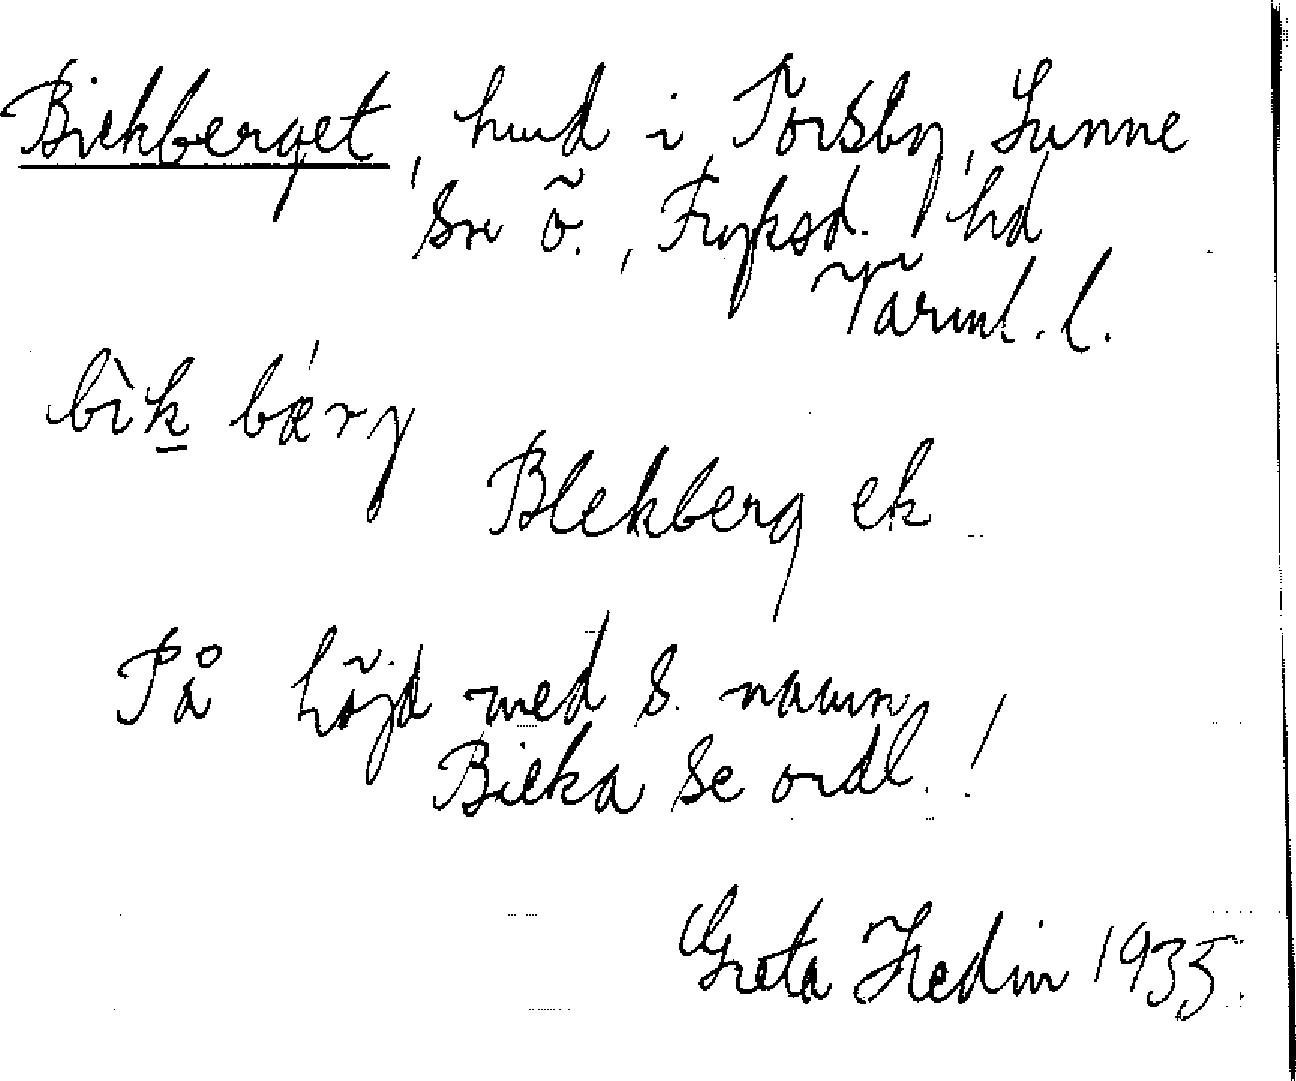 Bickberget, hmd i Torsby, Sunne
sn ö., Fryksd. hd
Värml. l.
bìk bǽrg
Blekberg ek
På höjd med s. namn
Bicka se ordl.!
Greta Hedin 1935.